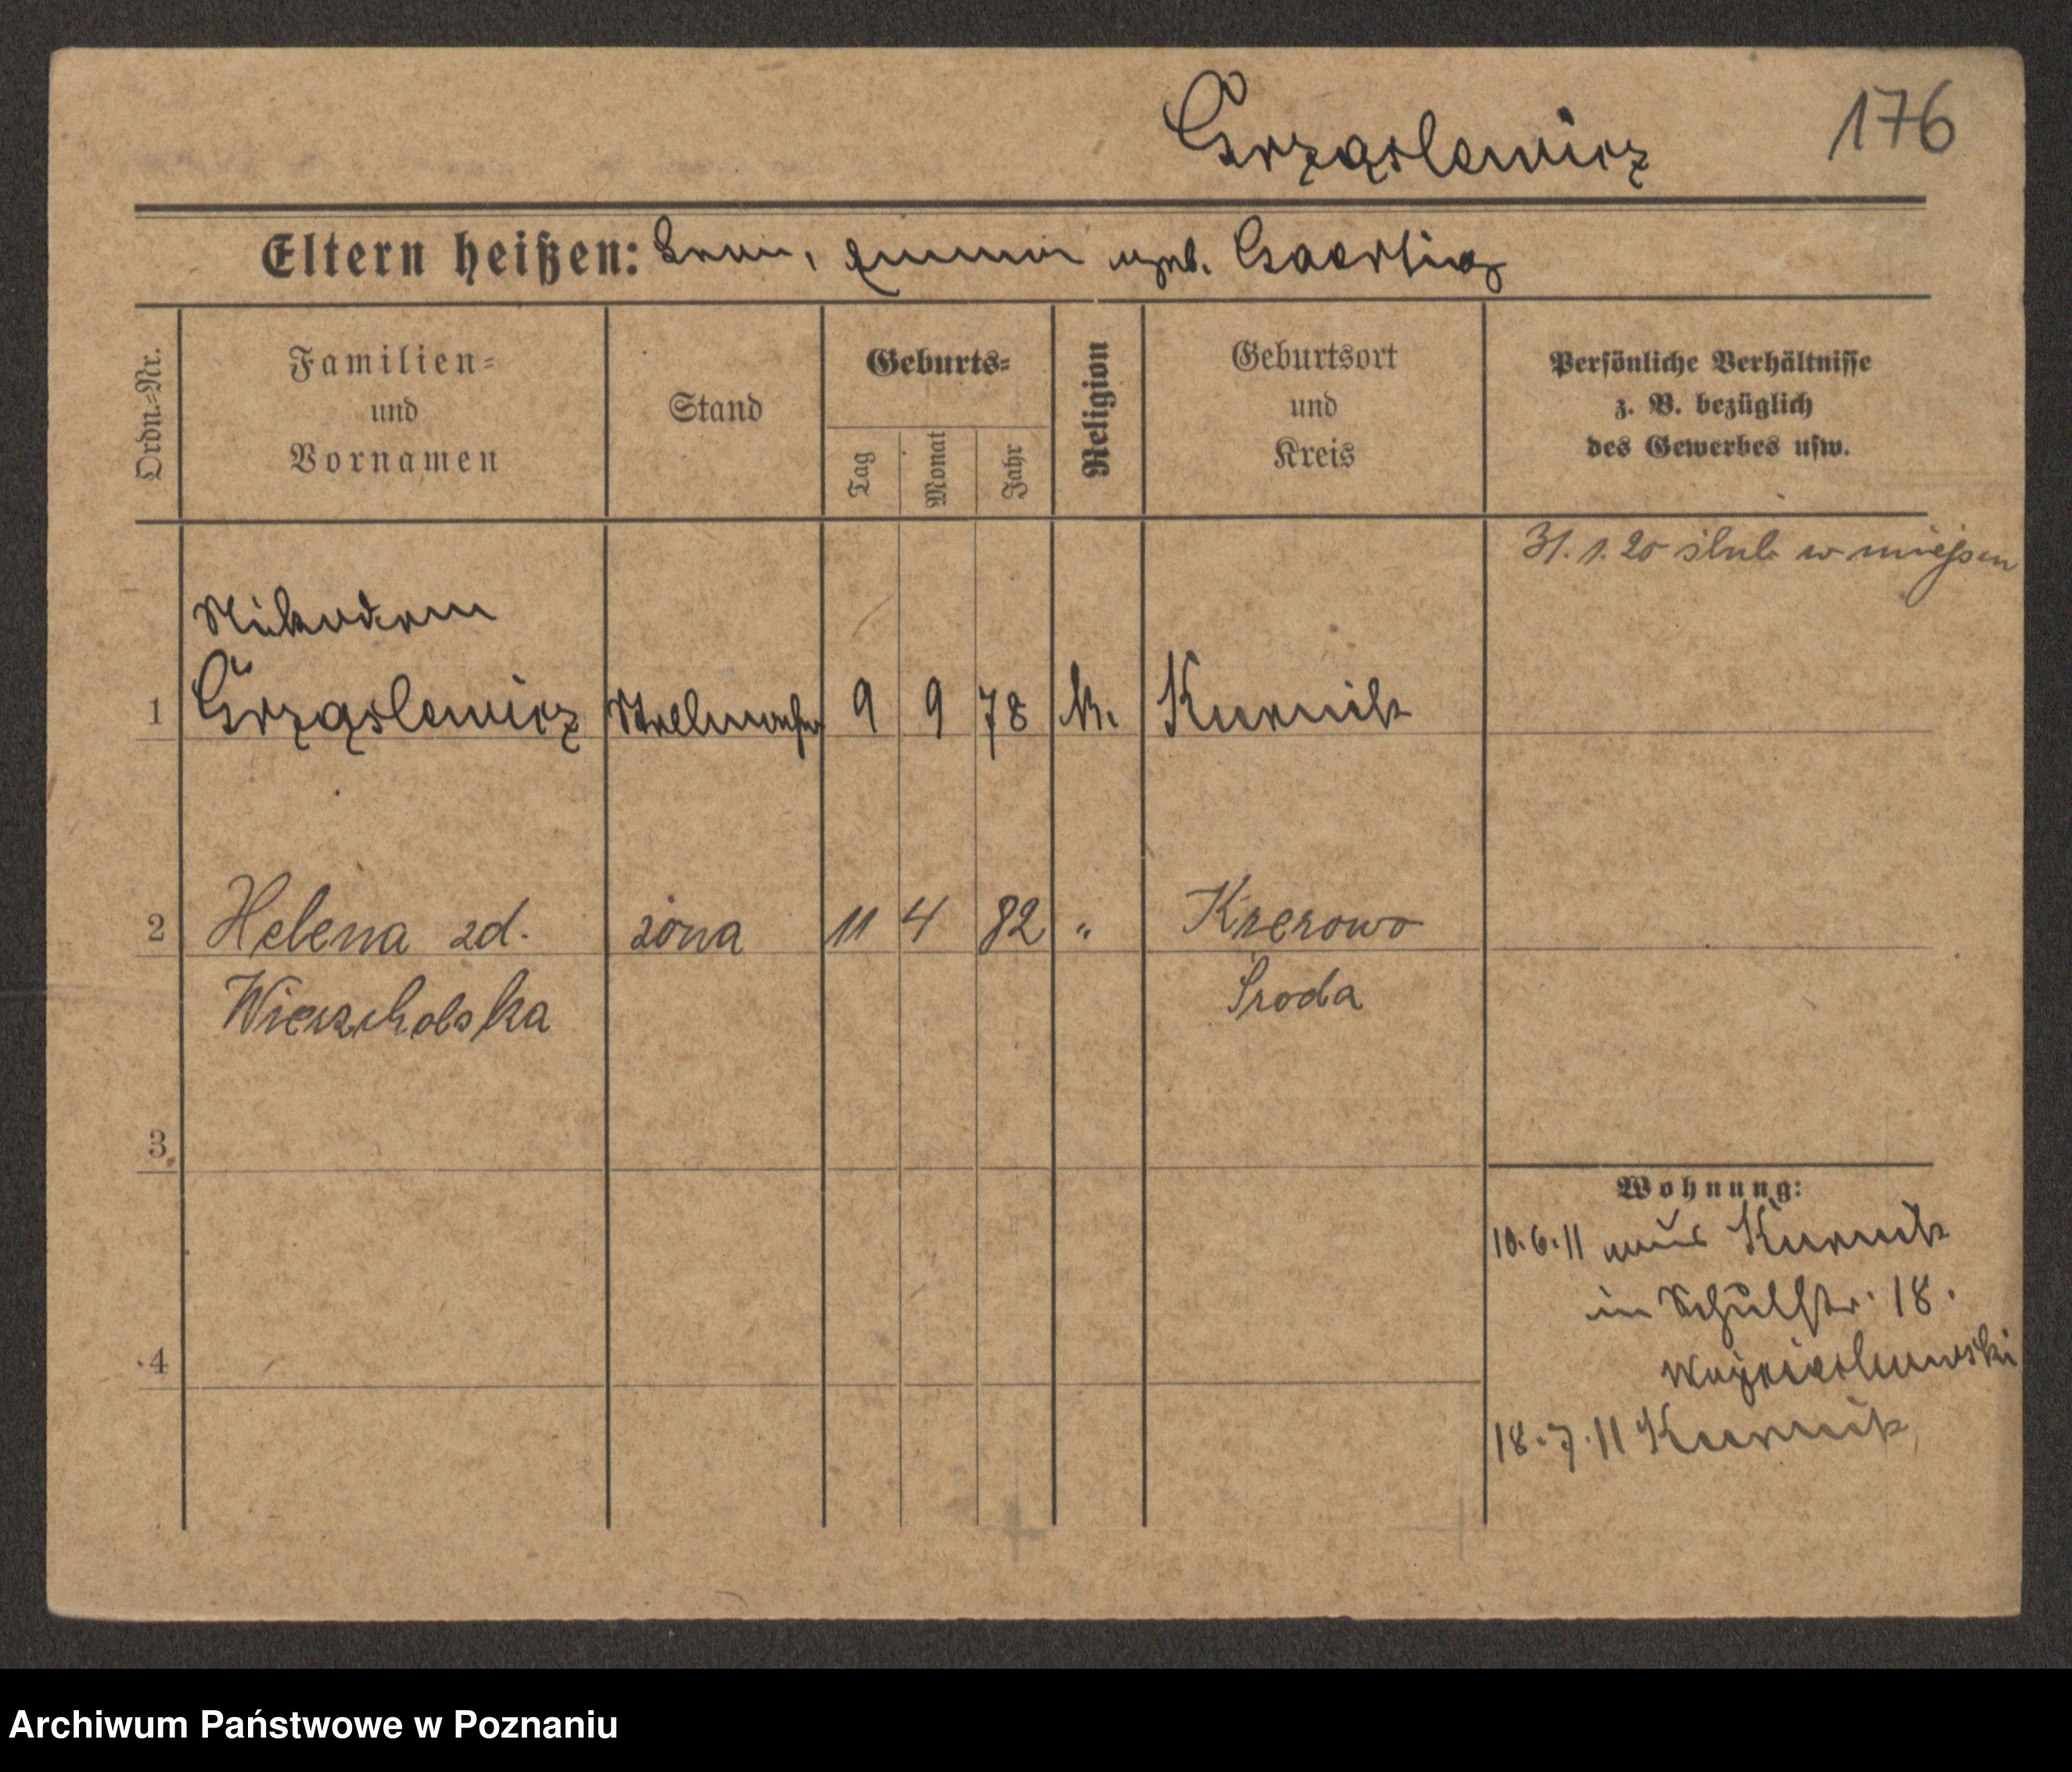 Grząslewicz
176
Eltern heißen: geb.
Ordn.-Nr.
Familien-
und
Vornamen
Stand
Geburts-
Tag
Monat
Jahr
Religion
Geburtsort
und
Kreis
Persönliche Verhältnisse
z. B. bezüglich
des Gewerbes usw.
31. 1. 20 ślub w miejscu
Nikodem
1 Grząslewicz Stellmacher 9 9 78 k. Kurnik
2 Helena zd. żona 11 4 82 " Krerowo
Wierzcholska Środa
3
4
Wohnung:
10.6.11 aus Kurnik
in Schulstr. 18.
18.7.11 Kurnik
Archiwum Państwowe w Poznaniu